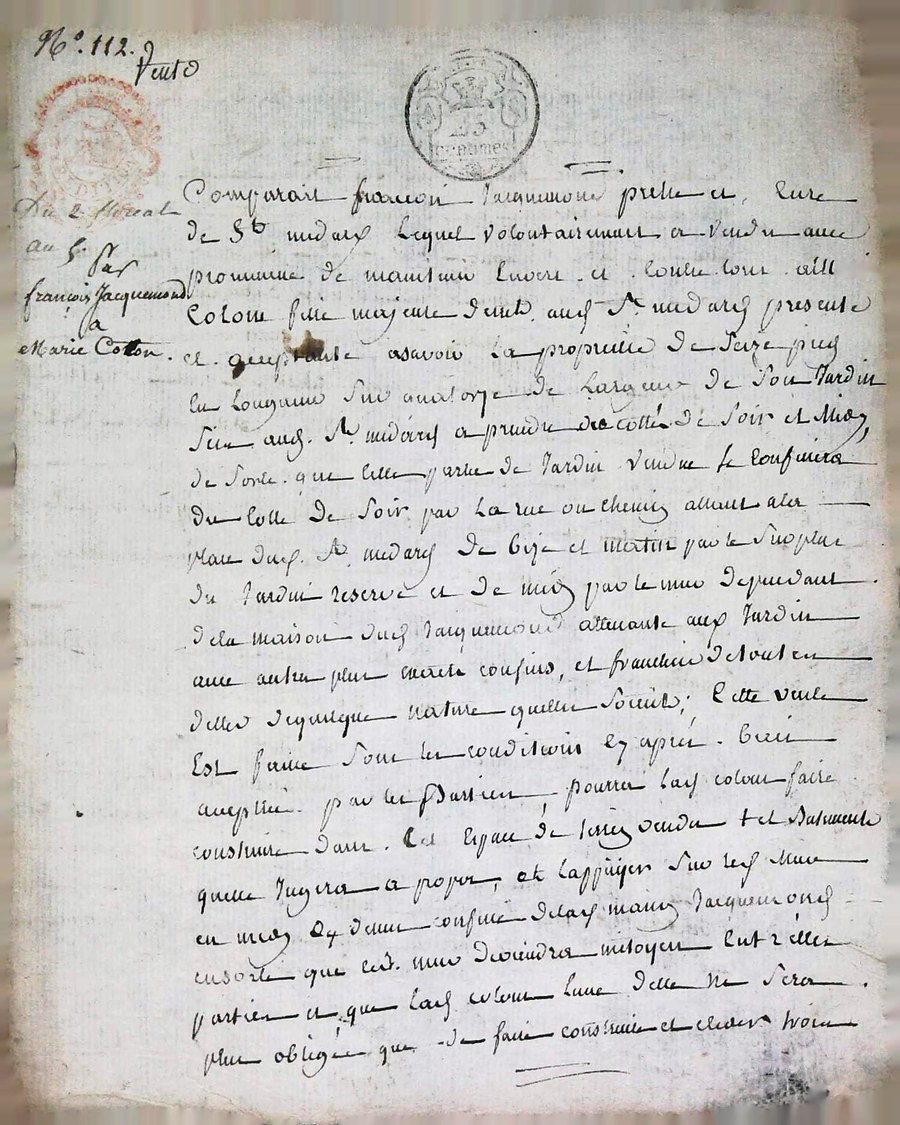 N°. 112.
Vente
25
centimes
Du 2 floreal
an
Par
françois Jacquemond
a
Marie Cotton.
Comparait françois Jacquemond pretre et, Cure
de St. medard Lequel volontairement a vendu avec
promesse de maintenir Envers et Contre tous a
Colone fille majeure demt. aud. St. medard presente
et acceptante asavoir La propriété de Seize pieds
En Longueur Sur quatorze de Largeur de Son Jardin
Sis aud. St. medard a prendre des cottés de Soir et Midy
de Sorte que Cette partie de Jardin vendue Se Confinera
du Cotté de Soir par La rue ou chemin allant a la
place dud. St. medard de bize et matin par le Surplus
du Jardin reservé et de midy par le mur dependant
de la maison dud. Jacquemond attenante aux Jardin
avec autres plus confins, et franchise de toutes
dettes de quelque nature quelles Soient; Cette vente
Est faite Sous les conditions Cy apres bien
acceptées par les Parties, pourra lad. colone faire
construire dans Cet Espace de terrein vendu tel Batiments
quelle Jugera a propos, et Lappuyer Sur led. Mur
en midy Cy devant confiné de lad. maison Jacquemond
ensorte que led. mur deviendra mitoyen Entr'elles
parties et que lad. colone ne Sera
plus obligée que de faire construire et